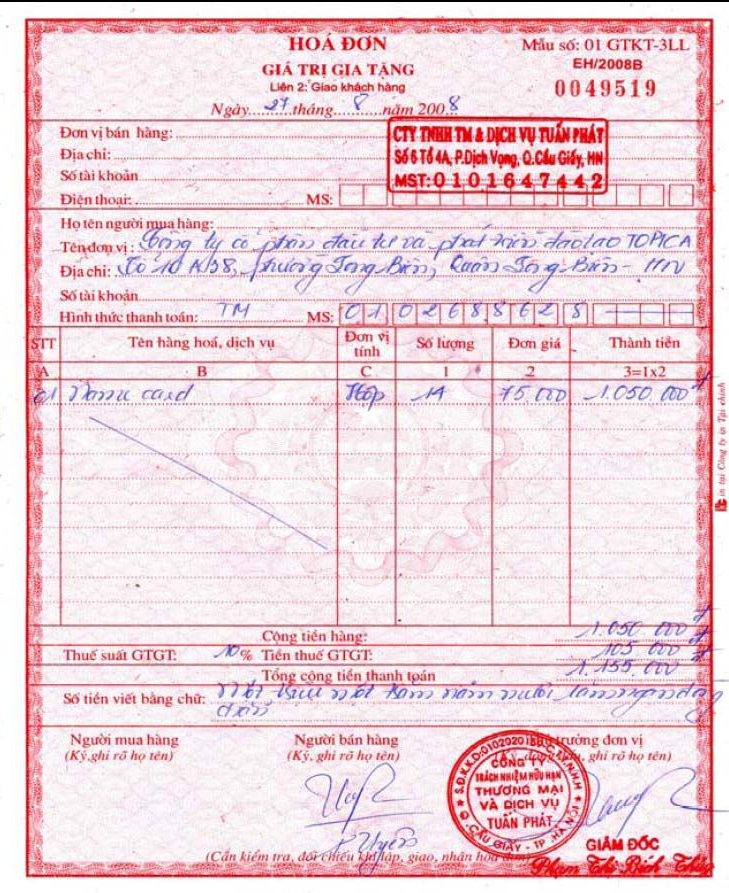 HOÁ ĐƠN
GIÁ TRỊ GIA TĂNG
Liên 2: Giao khách hàng
Ngày 27 tháng 8 năm 2008
Mẫu số: 01 GTKT-3LL
EH/2008B
0049519
Đơn vị bán hàng:
Địa chỉ:
Số tài khoản
Điện thoại: MS:
CTY TNHH TM & DỊCH VỤ TUẤN PHÁT
Số 6 Tổ 4A, P.Dịch Vọng, Q.Cầu Giấy, HN
MST: 0101647442
Họ tên người mua hàng:
Tên đơn vị: Công ty cổ phần đầu tư và phát triển đào tạo TOPICA
Địa chỉ: Tổ 10 phường Long Biên, Quận Long Biên - HN
Số tài khoản
Hình thức thanh toán: TM MS: 0102688628
STT Tên hàng hoá, dịch vụ Đơn vị tính Số lượng Đơn giá Thành tiền
A B C 1 2 3=1x2
01 Name card Hộp 14 75.000 1.050.000đ
Cộng tiền hàng: 1.050.000đ
Thuế suất GTGT: 10% Tiền thuế GTGT: 105.000đ
Tổng cộng tiền thanh toán 1.155.000đ
Số tiền viết bằng chữ: Một triệu một trăm năm mươi lăm ngàn đồng
chẵn
Người mua hàng
(Ký, ghi rõ họ tên)
Người bán hàng
(Ký, ghi rõ họ tên)
trưởng đơn vị
ghi rõ họ tên)
CÔNG TY
TRÁCH NHIỆM HỮU HẠN
THƯƠNG MẠI
VÀ DỊCH VỤ
TUẤN PHÁT
Q. CẦU GIẤY - TP HÀ NỘI
Uyên
GIÁM ĐỐC
Phạm Thị Bích Thủy
(Cần kiểm tra, đối chiếu khi lập, giao, nhận hoá đơn)
in tại Công ty in Tài chính